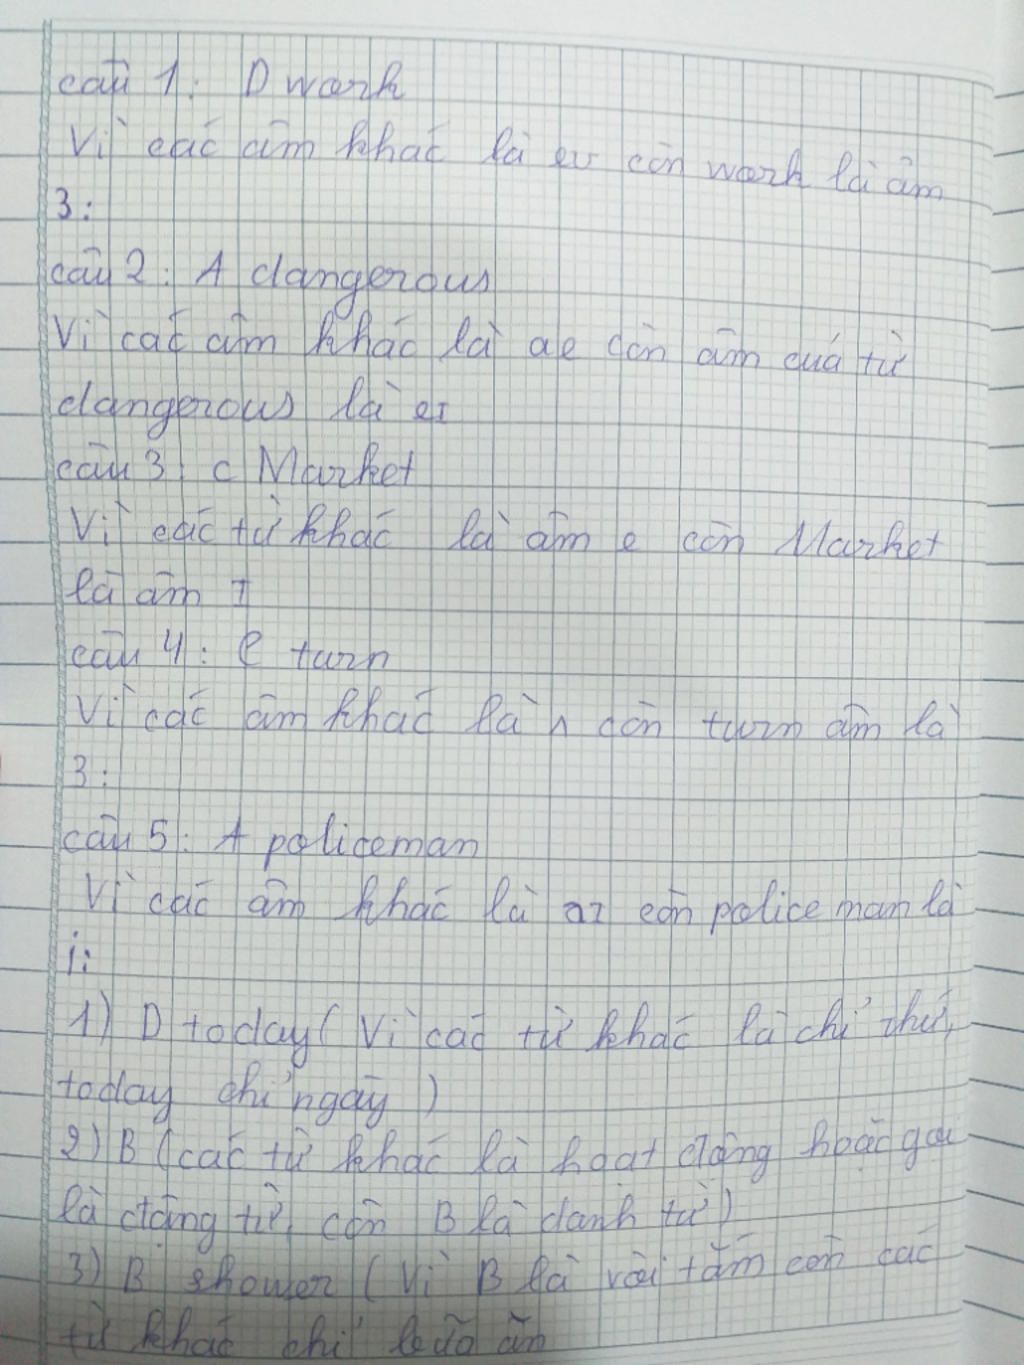 câu 1: D work
Vì các âm khác là əʊ còn work là âm
3:
câu 2: A dangerous
Vì các âm khác là ae còn âm của từ
dangerous là eɪ
câu 3: C Market
Vì các từ khác là âm e còn Market
là âm I
câu 4: C turn
Vì các âm khác là ʌ còn turn âm là
3:
câu 5: A policeman
Vì các âm khác là aɪ còn policeman là
i:
1) D today (Vì các từ khác là chỉ thứ,
today chỉ ngày)
2) B (các từ khác là hoạt động hoặc gọi
là động từ, còn B là danh từ)
3) B shower (Vì B là vòi tắm còn các
từ khác chỉ đồ ăn